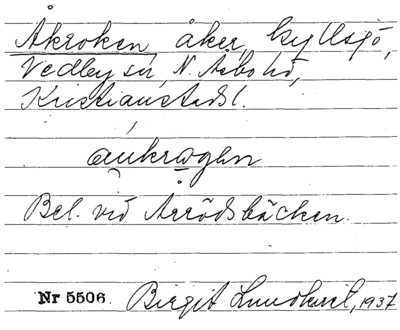 Åkroken åker, Kyllsjö,
Vedby sn, N. Åsbo hd,
Kristianstads l.
au̯krogen
Bel. vid Arrödsbäcken.
Nr 5506. Birgit Lundkvist, 1937